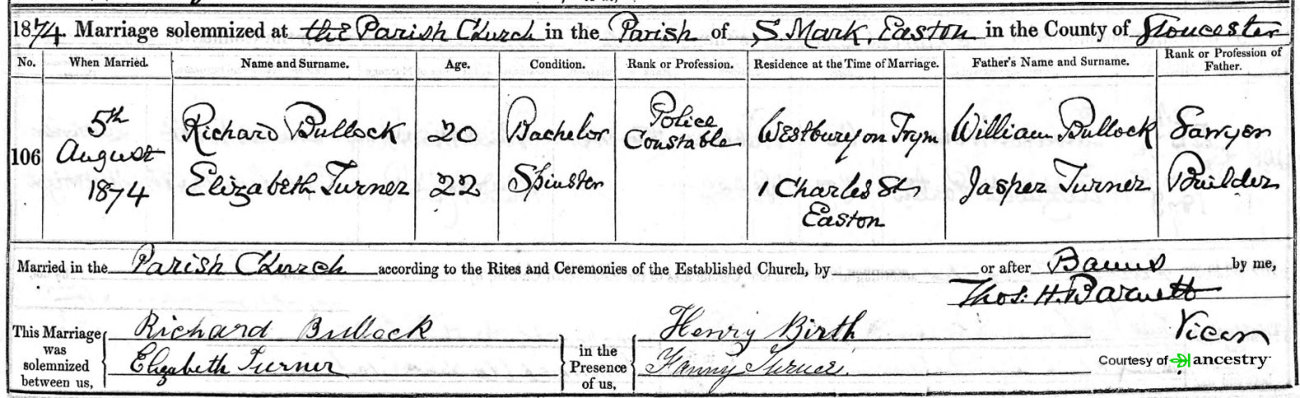 1874. Marriage solemnized at the Parish Church in the Parish of S. Mark, Easton in the County of Gloucester
No. When Married. Name and Surname. Age. Condition. Rank or Profession. Residence at the Time of Marriage. Father's Name and Surname. Rank or Profession of Father.
106 5th August 1874 Richard Bullock 20 Bachelor Police Constable Westbury on Trym William Bullock Sawyer
Elizabeth Turner 22 Spinster 1 Charles St Easton Jasper Turner Builder
Married in the Parish Church according to the Rites and Ceremonies of the Established Church, by or after Banns by me,
Thos. H. Barnett
Vicar
This Marriage was solemnized between us, Richard Bullock in the Presence of us, Henry Birth
Elizabeth Turner Fanny
Courtesy of ancestry